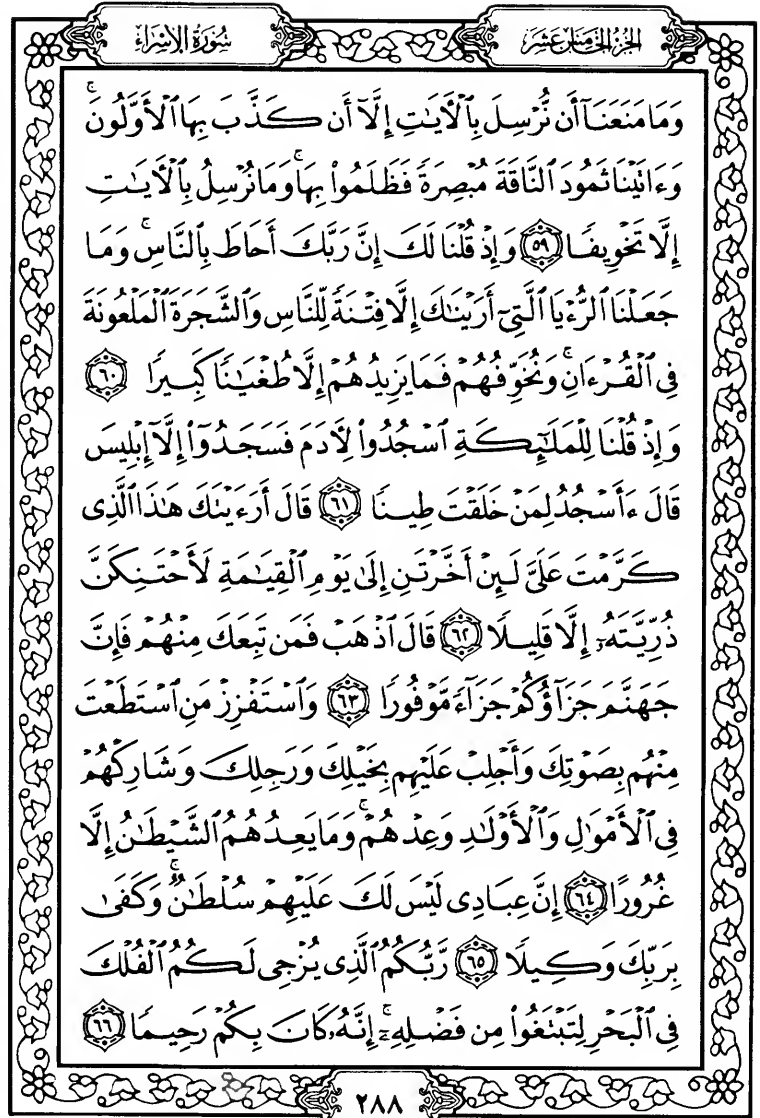 الجزء الخامس عشر
سورة الإسراء
وَمَا مَنَعَنَآ أَن نُّرْسِلَ بِٱلْـَٔايَـٰتِ إِلَّآ أَن كَذَّبَ بِهَا ٱلْأَوَّلُونَ ۚ
وَءَاتَيْنَا ثَمُودَ ٱلنَّاقَةَ مُبْصِرَةً فَظَلَمُوا۟ بِهَا ۚ وَمَا نُرْسِلُ بِٱلْـَٔايَـٰتِ
إِلَّا تَخْوِيفًا ٥٩ وَإِذْ قُلْنَا لَكَ إِنَّ رَبَّكَ أَحَاطَ بِٱلنَّاسِ ۚ وَمَا
جَعَلْنَا ٱلرُّءْيَا ٱلَّتِىٓ أَرَيْنَـٰكَ إِلَّا فِتْنَةً لِّلنَّاسِ وَٱلشَّجَرَةَ ٱلْمَلْعُونَةَ
فِى ٱلْقُرْءَانِ ۚ وَنُخَوِّفُهُمْ فَمَا يَزِيدُهُمْ إِلَّا طُغْيَـٰنًا كَبِيرًا ٦٠
وَإِذْ قُلْنَا لِلْمَلَـٰٓئِكَةِ ٱسْجُدُوا۟ لِـَٔادَمَ فَسَجَدُوٓا۟ إِلَّآ إِبْلِيسَ
قَالَ ءَأَسْجُدُ لِمَنْ خَلَقْتَ طِينًا ٦١ قَالَ أَرَءَيْتَكَ هَـٰذَا ٱلَّذِى
كَرَّمْتَ عَلَىَّ لَئِنْ أَخَّرْتَنِ إِلَىٰ يَوْمِ ٱلْقِيَـٰمَةِ لَأَحْتَنِكَنَّ
ذُرِّيَّتَهُۥٓ إِلَّا قَلِيلًا ٦٢ قَالَ ٱذْهَبْ فَمَن تَبِعَكَ مِنْهُمْ فَإِنَّ
جَهَنَّمَ جَزَآؤُكُمْ جَزَآءً مَّوْفُورًا ٦٣ وَٱسْتَفْزِزْ مَنِ ٱسْتَطَعْتَ
مِنْهُم بِصَوْتِكَ وَأَجْلِبْ عَلَيْهِم بِخَيْلِكَ وَرَجِلِكَ وَشَارِكْهُمْ
فِى ٱلْأَمْوَٰلِ وَٱلْأَوْلَـٰدِ وَعِدْهُمْ ۚ وَمَا يَعِدُهُمُ ٱلشَّيْطَـٰنُ إِلَّا
غُرُورًا ٦٤ إِنَّ عِبَادِى لَيْسَ لَكَ عَلَيْهِمْ سُلْطَـٰنٌ ۚ وَكَفَىٰ
بِرَبِّكَ وَكِيلًا ٦٥ رَّبُّكُمُ ٱلَّذِى يُزْجِى لَكُمُ ٱلْفُلْكَ
فِى ٱلْبَحْرِ لِتَبْتَغُوا۟ مِن فَضْلِهِۦٓ ۚ إِنَّهُۥ كَانَ بِكُمْ رَحِيمًا ٦٦
٢٨٨